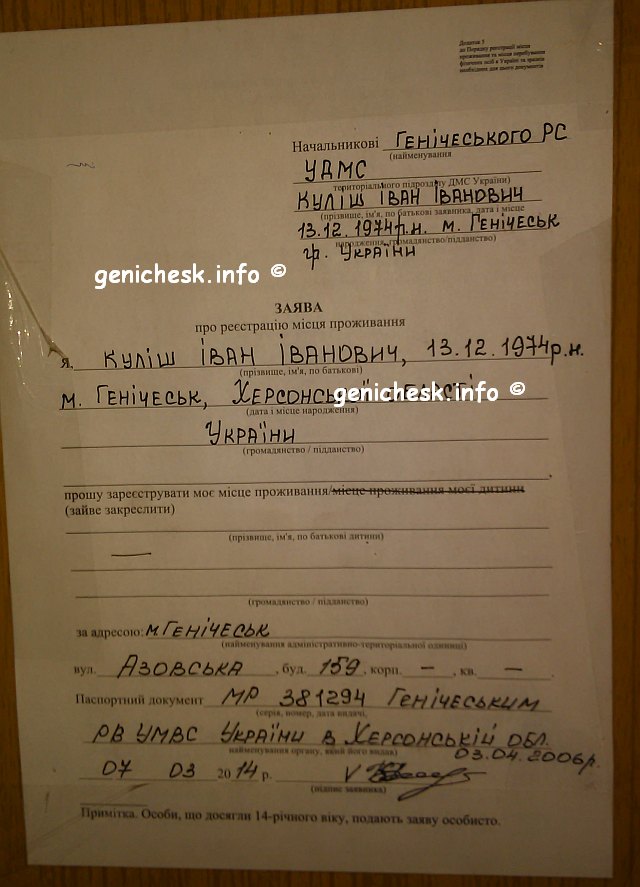 Додаток 5
до Порядку реєстрації місця
проживання та місця перебування
фізичних осіб в Україні та зразків
необхідних для цього документів
Начальникові ГЕНІЧЕСЬКОГО РС
(найменування
УДМС
територіального підрозділу ДМС України)
КУЛІШ ІВАН ІВАНОВИЧ
(прізвище, ім'я, по батькові заявника, дата і місце
13.12.1974р.н. м. ГЕНІЧЕСЬК
народження, громадянство/підданство)
гр. УКРАЇНИ
genichesk.info ©
ЗАЯВА
про реєстрацію місця проживання
Я, КУЛІШ ІВАН ІВАНОВИЧ, 13.12.1974р.н.
(прізвище, ім'я, по батькові)
м. ГЕНІЧЕСЬК, ХЕРСОНСЬКОЇ ОБЛАСТІ
genichesk.info ©
(дата і місце народження)
УКРАЇНИ
(громадянство / підданство)
прошу зареєструвати моє місце проживання/місце проживання моєї дитини
(зайве закреслити)
(прізвище, ім'я, по батькові дитини)
(громадянство / підданство)
за адресою: м.ГЕНІЧЕСЬК
(найменування адміністративно-територіальної одиниці)
вул. АЗОВСЬКА, буд. 159, корп. –, кв. –.
Паспортний документ МР 381294 ГЕНІЧЕСЬКИМ
(серія, номер, дата видачі,
РВ УМВС УКРАЇНИ В ХЕРСОНСЬКІЙ ОБЛ.
найменування органу, який його видав)
03.04.2006р.
07 03 2014 р. V
(підпис заявника)
Примітка. Особи, що досягли 14-річного віку, подають заяву особисто.